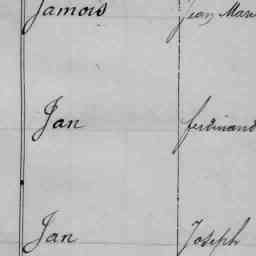 Jamois Jean Marie
Jan ferdinand
Jan Joseph